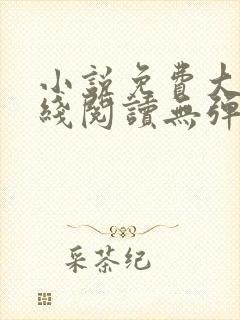 小说免費大
綫閱讀無彈
采茶纪